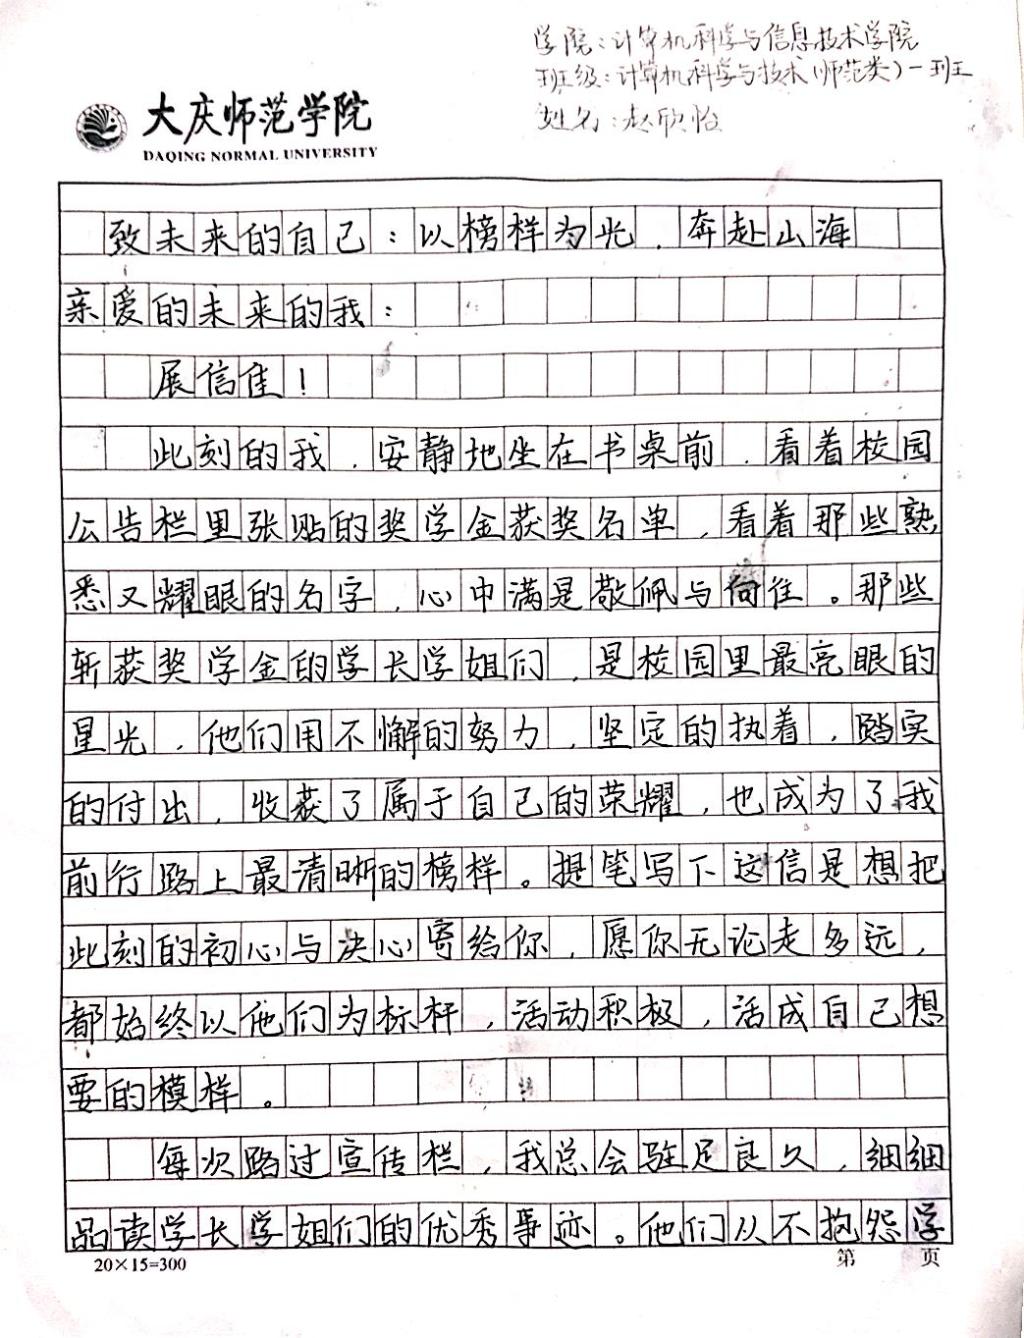 学院：计算机科学与信息技术学院
班级：计算机科学与技术（师范类）一班
姓名：赵欣怡
大庆师范学院
DAQING NORMAL UNIVERSITY
致未来的自己：以榜样为光，奔赴山海
亲爱的未来的我：
展信佳！
此刻的我，安静地坐在书桌前，看着校园
公告栏里张贴的奖学金获奖名单，看着那些熟
悉又耀眼的名字，心中满是敬佩与向往。那些
斩获奖学金的学长学姐们，是校园里最亮眼的
星光，他们用不懈的努力，坚定的执着，踏实
的付出，收获了属于自己的荣耀，也成为了我
前行路上最清晰的榜样。提笔写下这信是想把
此刻的初心与决心寄给你，愿你无论走多远，
都始终以他们为标杆，活动积极，活成自己想
要的模样。
每次路过宣传栏，我总会驻足良久，细细
品读学长学姐们的优秀事迹。他们从不抱怨学
20×15=300
第 页